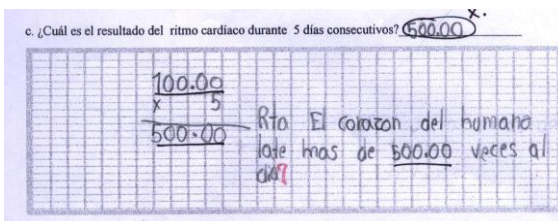 x.
c. ¿Cuál es el resultado del ritmo cardíaco durante 5 días consecutivos? 500.00
100.00
x 5
500.00
Rta El corazon del humano
late mas de 500.00 veces al
dia?